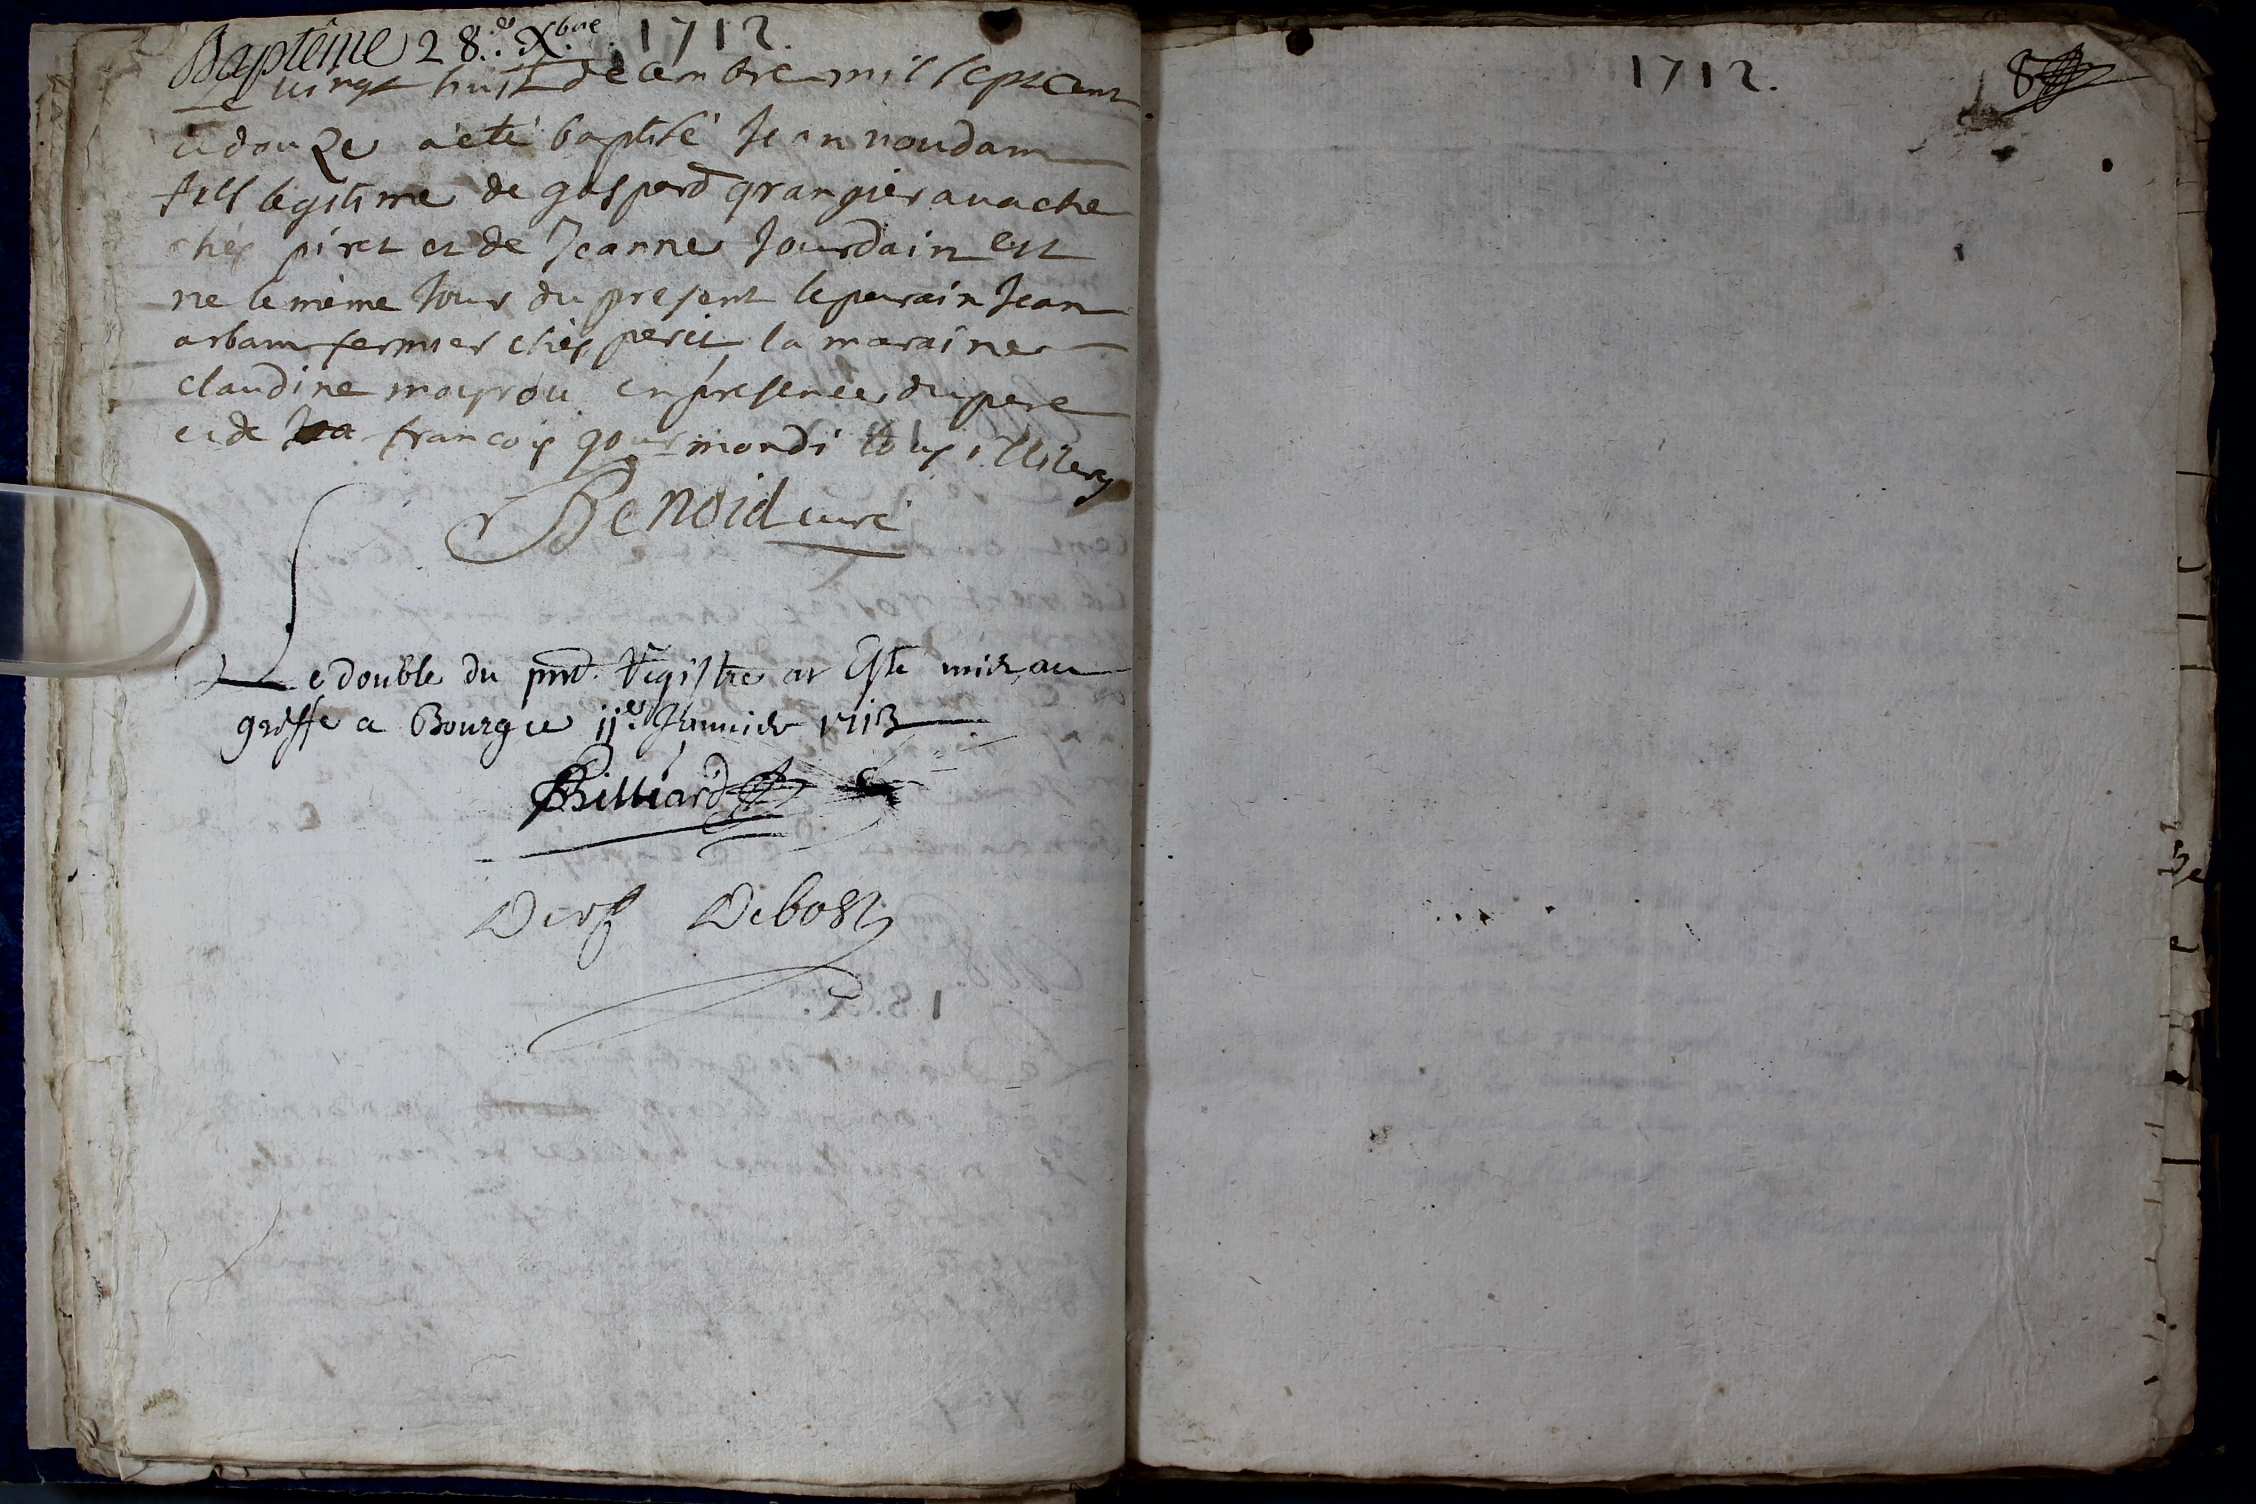 Baptême 28.e Xbre. 1712.
Le vingt huit decembre mil sept cent
et douze a eté baptisé Jean noudam
fils legitime de gaspard grangier a vache
chés piret et de Jeanne Jourdain est
né le même Jour du present le parain Jean
arbam fermier chés peret la maraine
claudine mayrou en presence du pere
et de francois gourmondi tous illiterés
Benoid curé
Le double du pnt. Registre at Esté mis au
greffe a Bourg ce 11e. Januier 1713
Billiard
Debost
1712.
8